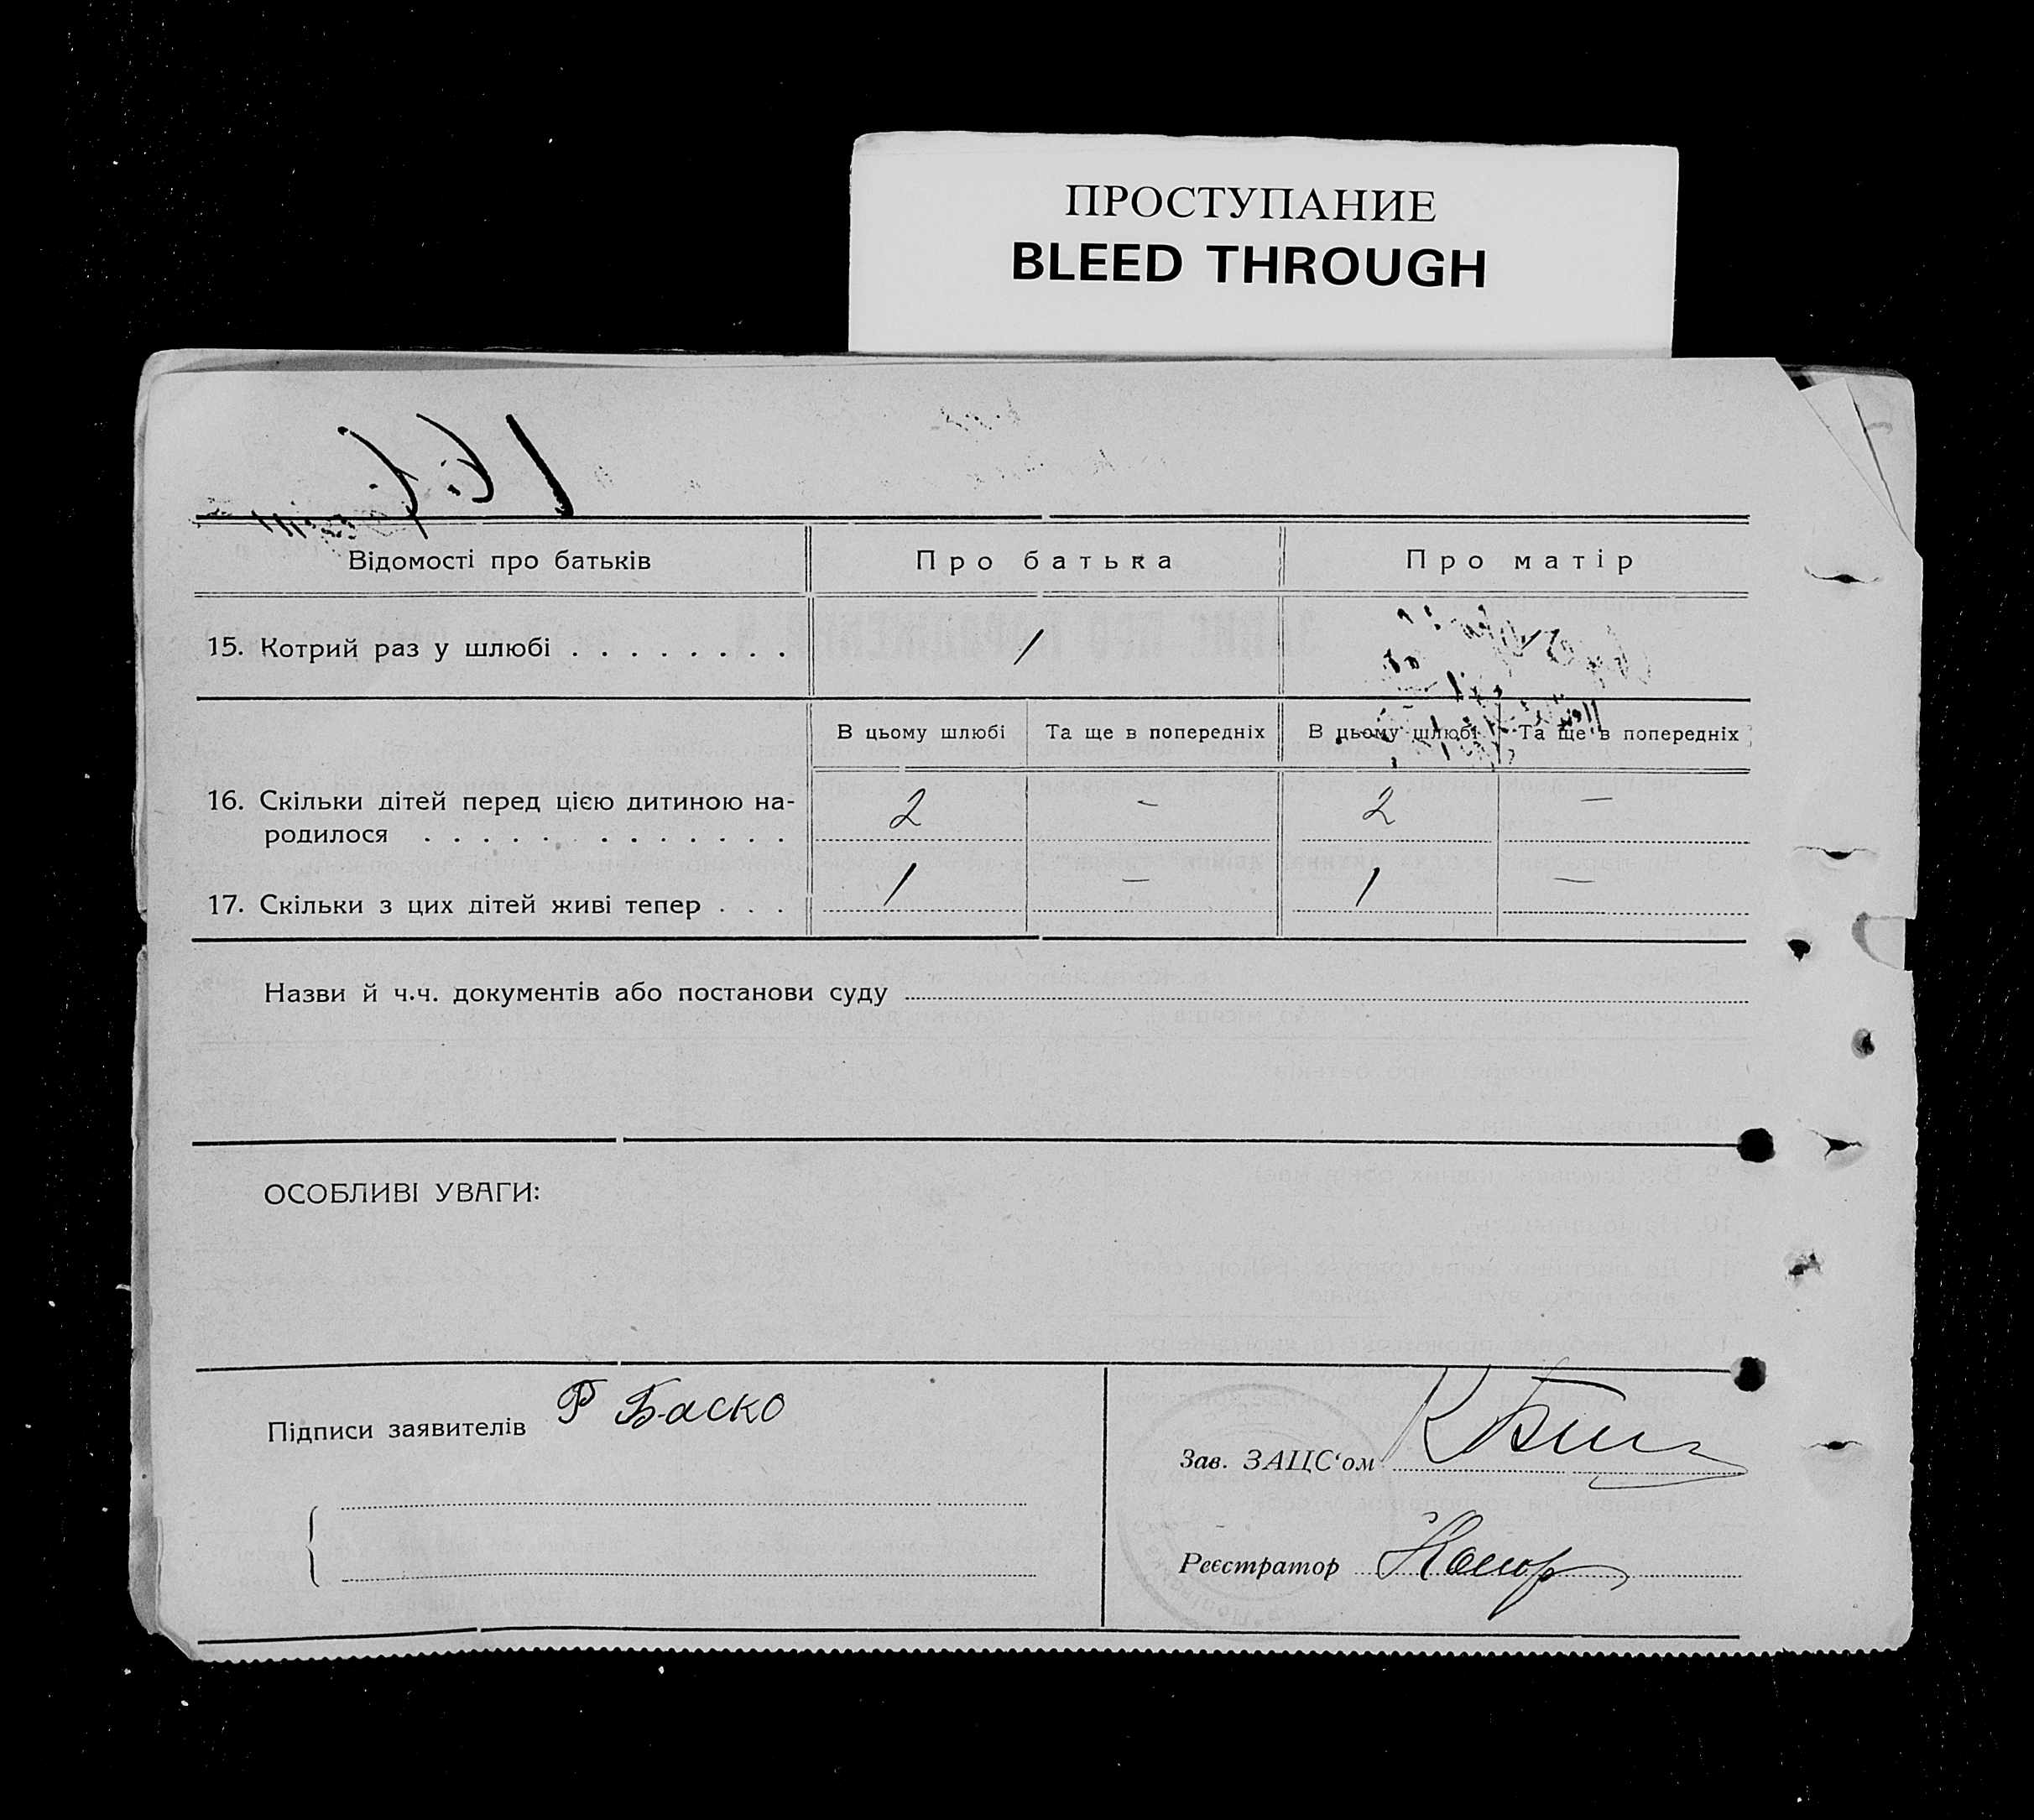 ПРОСТУПАНИЕ
BLEED THROUGH
Відомості про батьків Про батька Про матір
15. Котрий раз у шлюбі . . . . . . . . 1
В цьому шлюбі Та ще в попередніх В цьому шлюбі Та ще в попередніх
16. Скільки дітей перед цією дитиною на-
родилося . . . . . . . . . . . . . 2 - 2 -
17. Скільки з цих дітей живі тепер . . . 1 - 1 -
Назви й ч.ч. документів або постанови суду
ОСОБЛИВІ УВАГИ:
Підписи заявителів Р Баско
Зав. ЗАЦС‘ом
Реєстратор